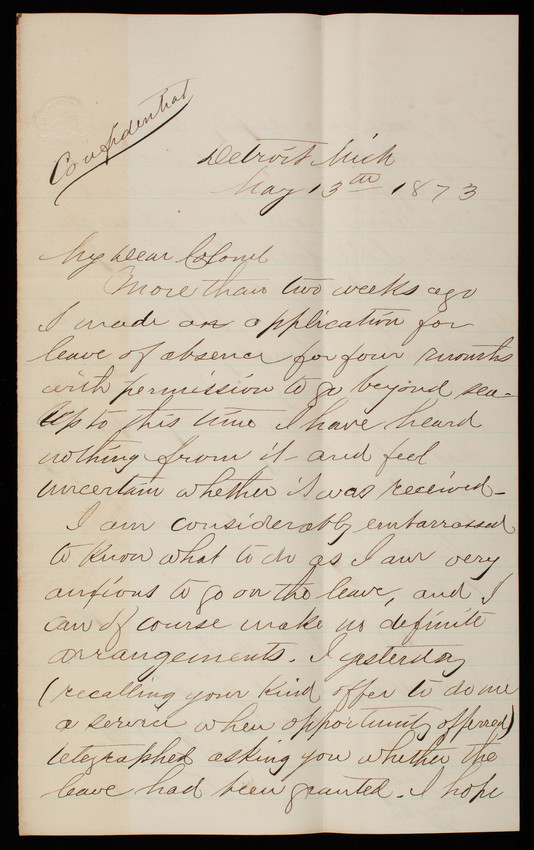 Confidential
Detroit Mich
May 13th 1873
My Dear Colonel
More than two weeks ago
I made an application for
leave of absence for four months
with permission to go beyond sea -
Up to this time I have heard
nothing from it - and feel
uncertain whether it was received -
I am considerably embarrassed
to know what to do as I am very
anxious to go on the leave, and I
can of course make no definite
arrangements. I yesterday
(recalling your kind offer to do me
a service when opportunity offered)
telegraphed asking you whether the
leave had been granted. I hope